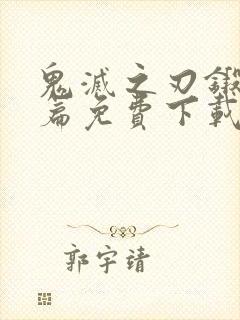 鬼滅之刃鍛
篇免費下載
郭宇靖